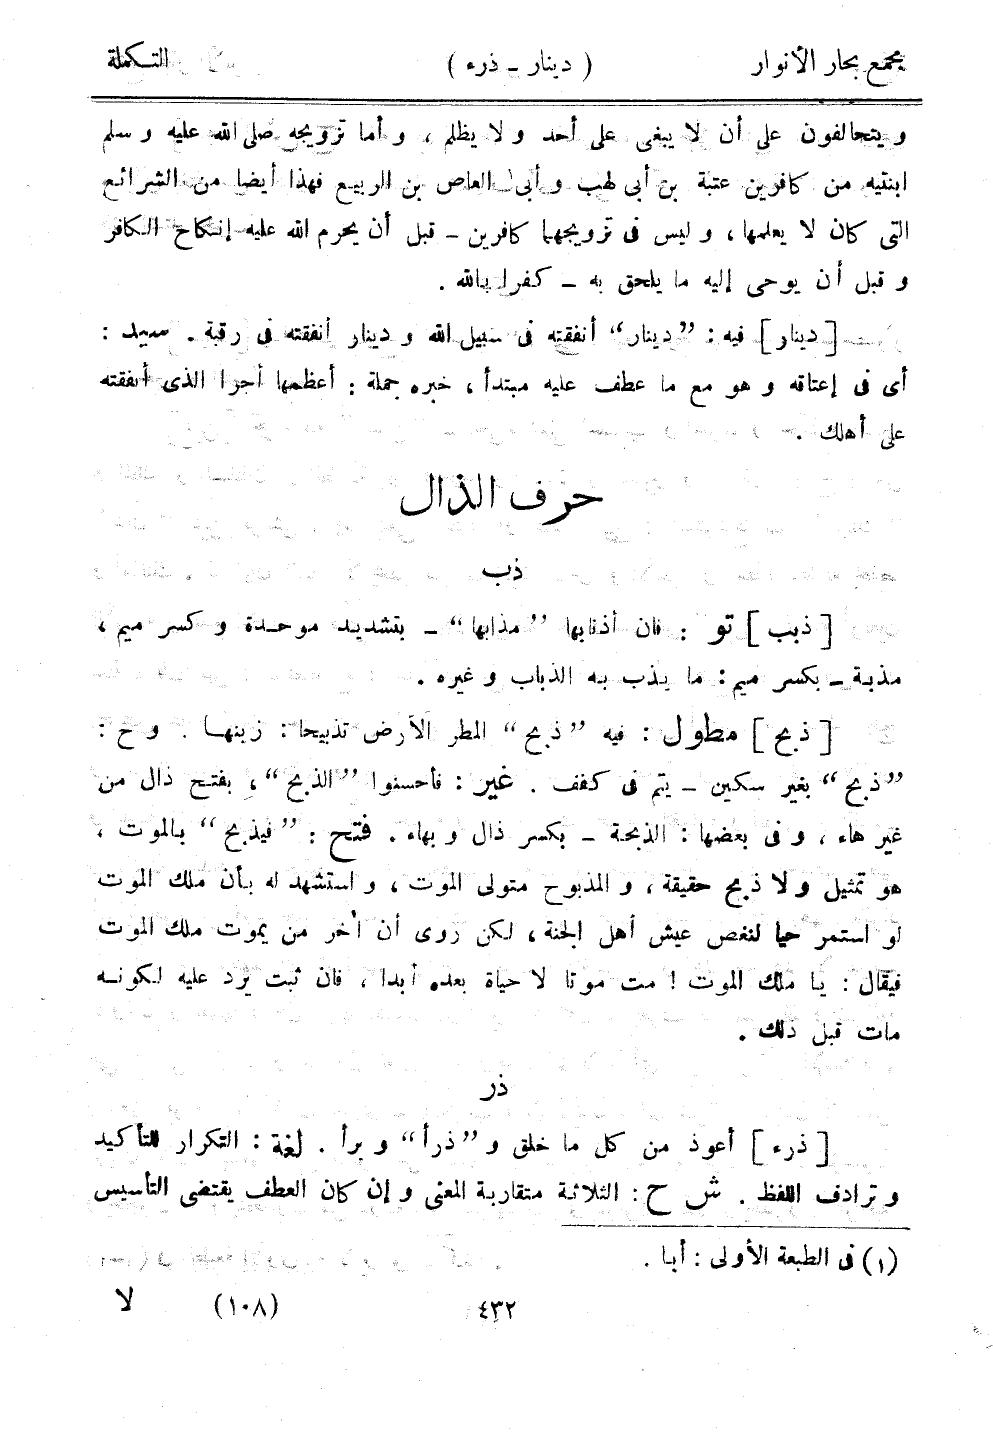 مجمع بحار الأنوار ( دينار ـ ذرء ) التكملة
و يتحالفون على أن لا يبغى على أحد و لا يظلم ، و أما تزويجه صلى الله عليه و سلم
ابنتيه من كافرين عتبة بن أبى لهب و أبى¹ العاص بن الربيع فهذا أيضا من الشرائع
التى كان لا يعلمها ، و ليس فى تزويجهما كافرين ـ قبل أن يحرم الله عليه إنكاح الكافر
و قبل أن يوحى إليه ما يلحق به ـ كفرا بالله .
[ دينار ] فيه : ”دينار“ أنفقته فى سبيل الله و دينار أنفقته فى رقبة . سيد :
أى فى إعتاقه و هو مع ما عطف عليه مبتدأ ، خبره جملة : أعظمها أجرا الذى أنفقته
على أهلك .
حرف الذال
ذب
[ ذبب ] تو : فان أذنابها ”مذابها“ ـ بتشديد موحدة و كسر ميم ،
مذبة ـ بكسر ميم : ما يذب به الذباب و غيره .
[ ذبح ] مطول : فيه ”ذبح“ المطر الأرض تذبيحا : زينها . و ح :
”ذبح“ بغير سكين ـ يتم فى كفف . غير : فأحسنوا ”الذبح“ ، بفتح ذال من
غير هاء ، و فى بعضها : الذبحة ـ بكسر ذال و بهاء . فتح : ”فيذبح“ بالموت ،
هو تمثيل و لا ذبح حقيقة ، و المذبوح متولى الموت ، و استشهد له بأن ملك الموت
لو استمر حيا لنغص عيش أهل الجنة ، لكن روى أن آخر من يموت ملك الموت
فيقال : يا ملك الموت ! مت موتا لا حياة بعده أبدا ، فان ثبت يرد عليه لكونه
مات قبل ذلك .
ذر
[ ذرء ] أعوذ من كل ما خلق و ”ذرأ“ و برأ . لغة : التكرار للتأكيد
و ترادف اللفظ . ش ح : الثلاثة متقاربة المعنى و إن كان العطف يقتضى التأسيس
(١) فى الطبعة الأولى : أبا .
٤٣٢ (١٠٨) لا